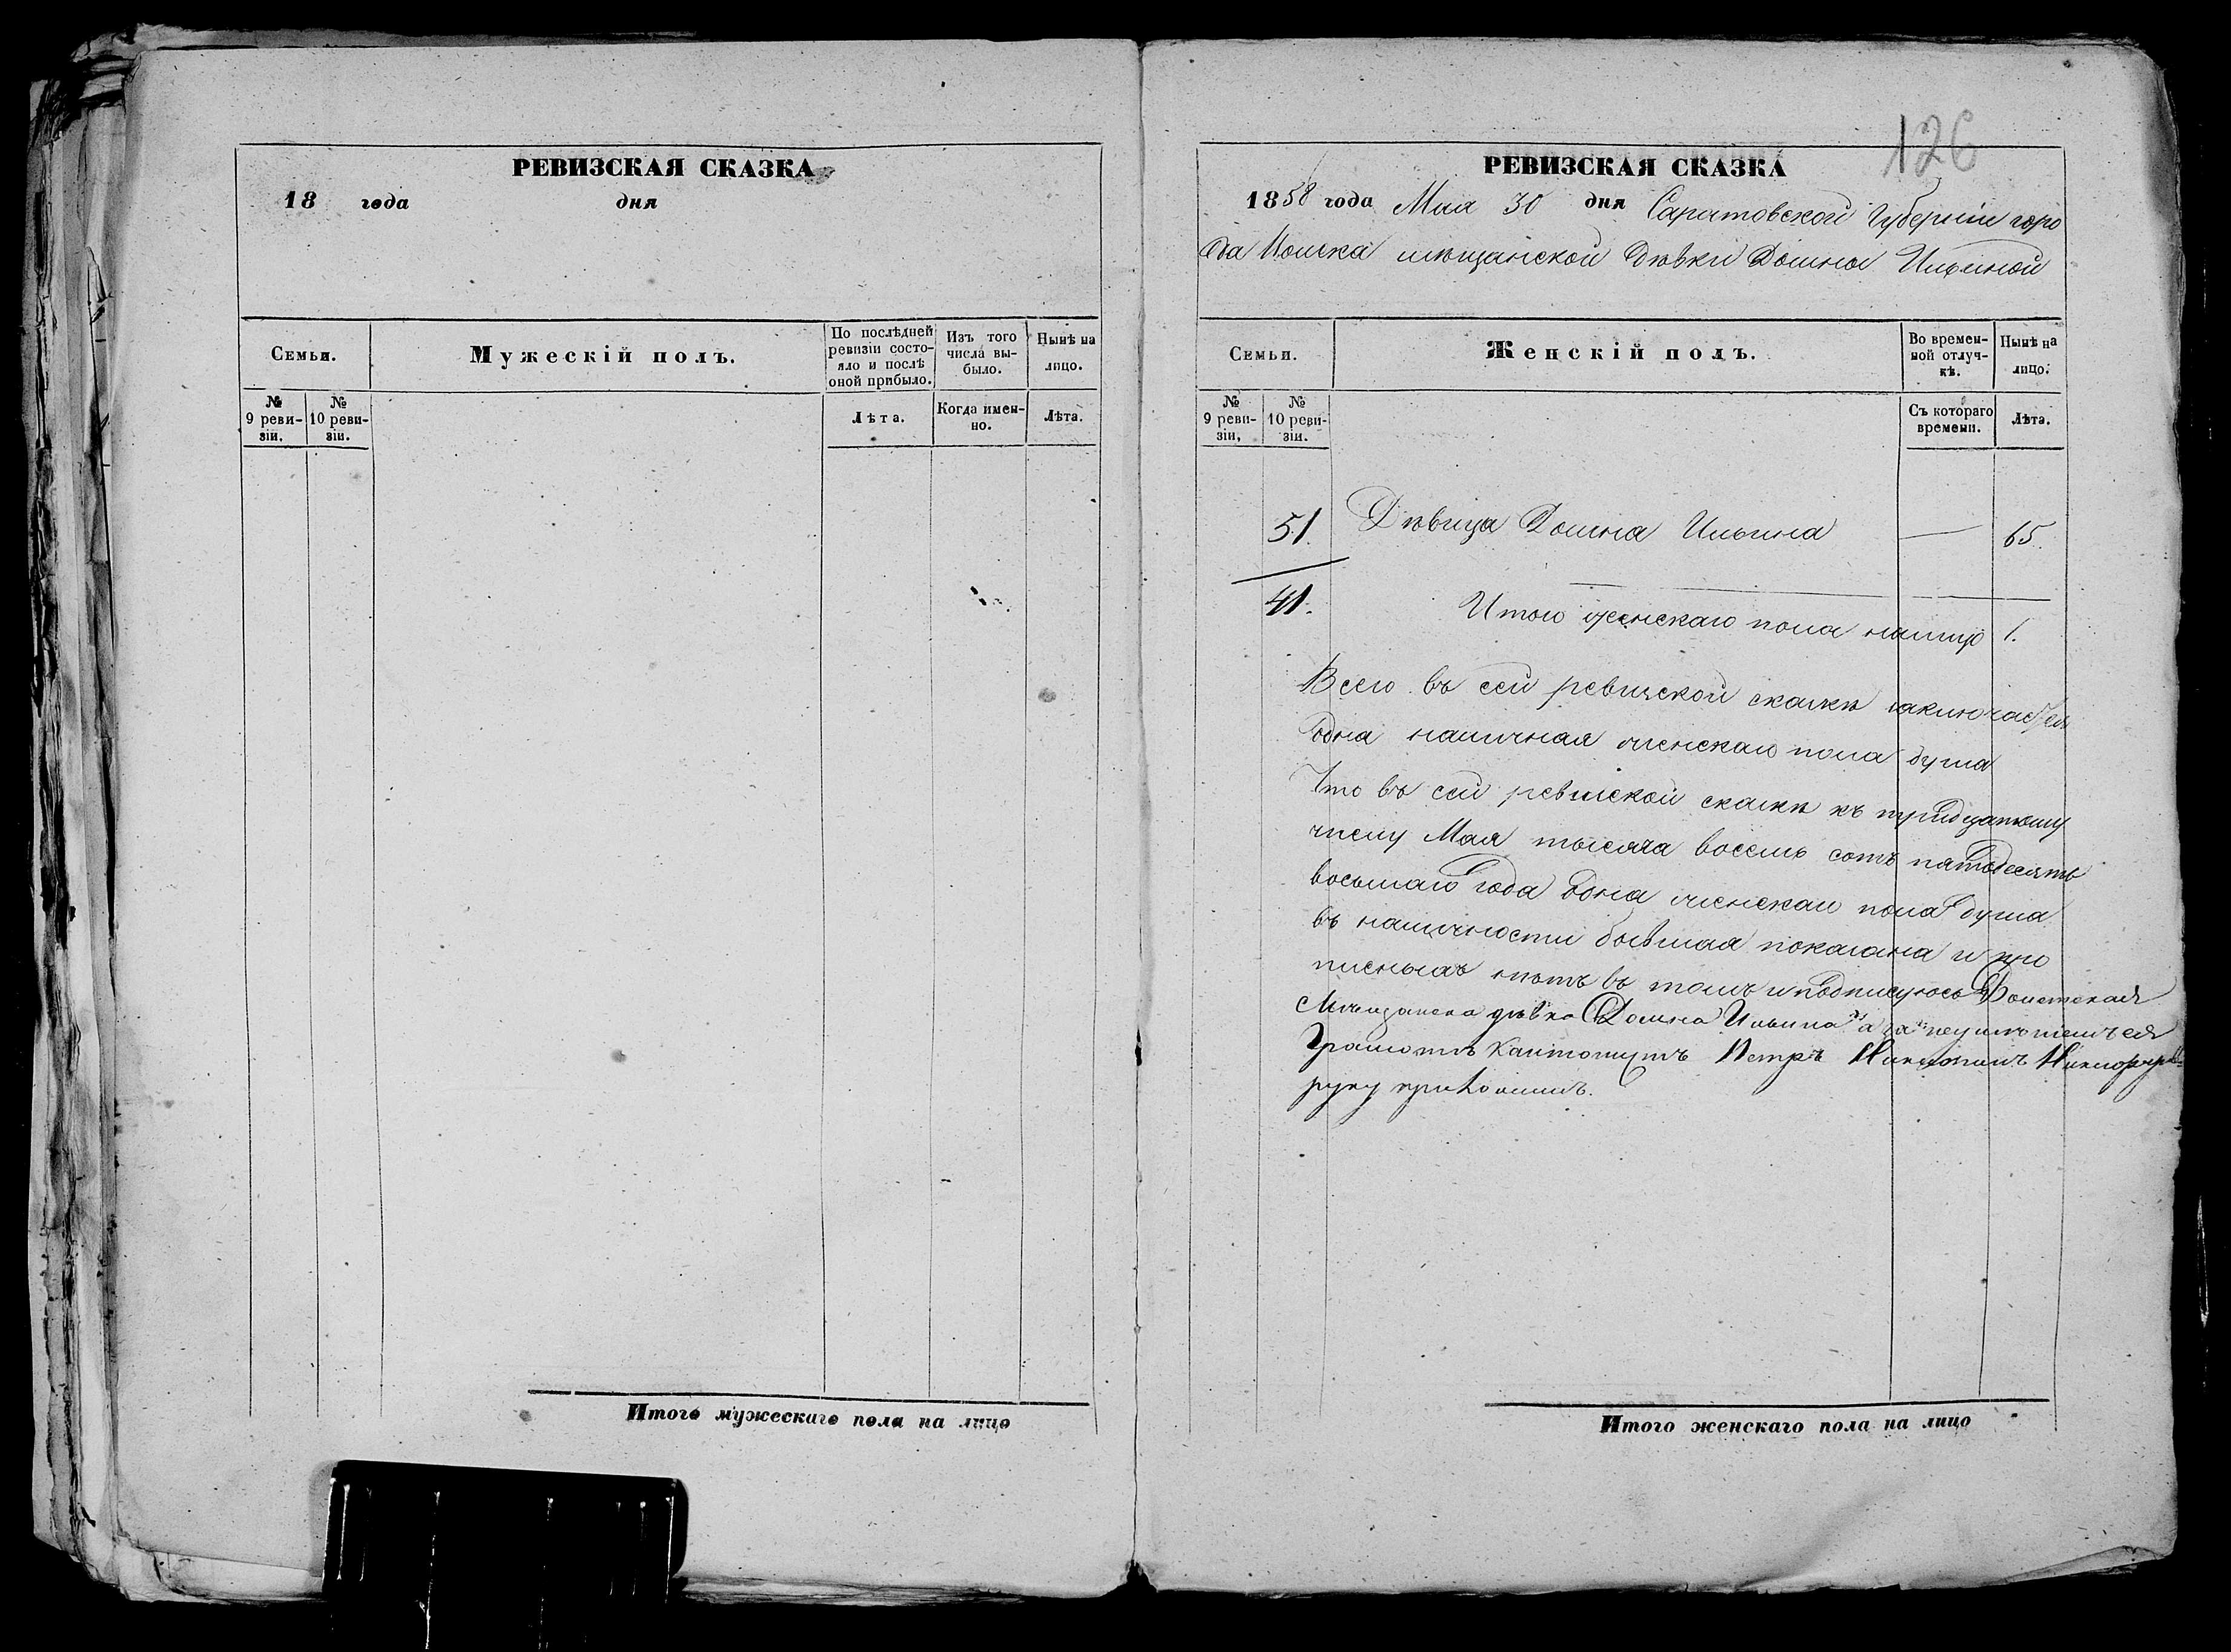 РЕВИЗСКАЯ СКАЗКА
18 года дня
Семьи.
Мужескій полъ.
По послѣдней ревизіи состояло и послѣ оной прибыло.
Изъ того числа выбыло.
Нынѣ на лицо.
№ 9 ревизіи.
№ 10 ревизіи.
Лѣта.
Когда именно.
Лѣта.
Итого мужескаго пола на лицо
126
РЕВИЗСКАЯ СКАЗКА
1858 года Мая 30 дня Саратовской Губерніи горо
да Вольска мѣщанской дѣвки Домны Ильиной
Семьи.
Женскій полъ.
Во временной отлучкѣ.
Нынѣ на лицо.
№ 9 ревизіи.
№ 10 ревизіи.
Съ котораго времени.
Лѣта.
51. Дѣвица Домна Ильина — 65.
41. Итого женскаго пола налицо 1.
Всего въ сей ревизской сказкѣ заключается
одна наличная женскаго пола душа
Что въ сей ревизской сказкѣ къ тридцатому
числу Мая тысяча восемь сотъ пятьдесятъ
восьмаго года одна женскаго пола душа
въ наличности бывшая показана и про
писныхъ нѣтъ въ томъ и подписуюсь Вольская
Мѣщанска дѣвка Домна Ильина а за неумѣніемъ ея
Грамотѣ Петръ
руку приложилъ.
Итого женскаго пола на лицо